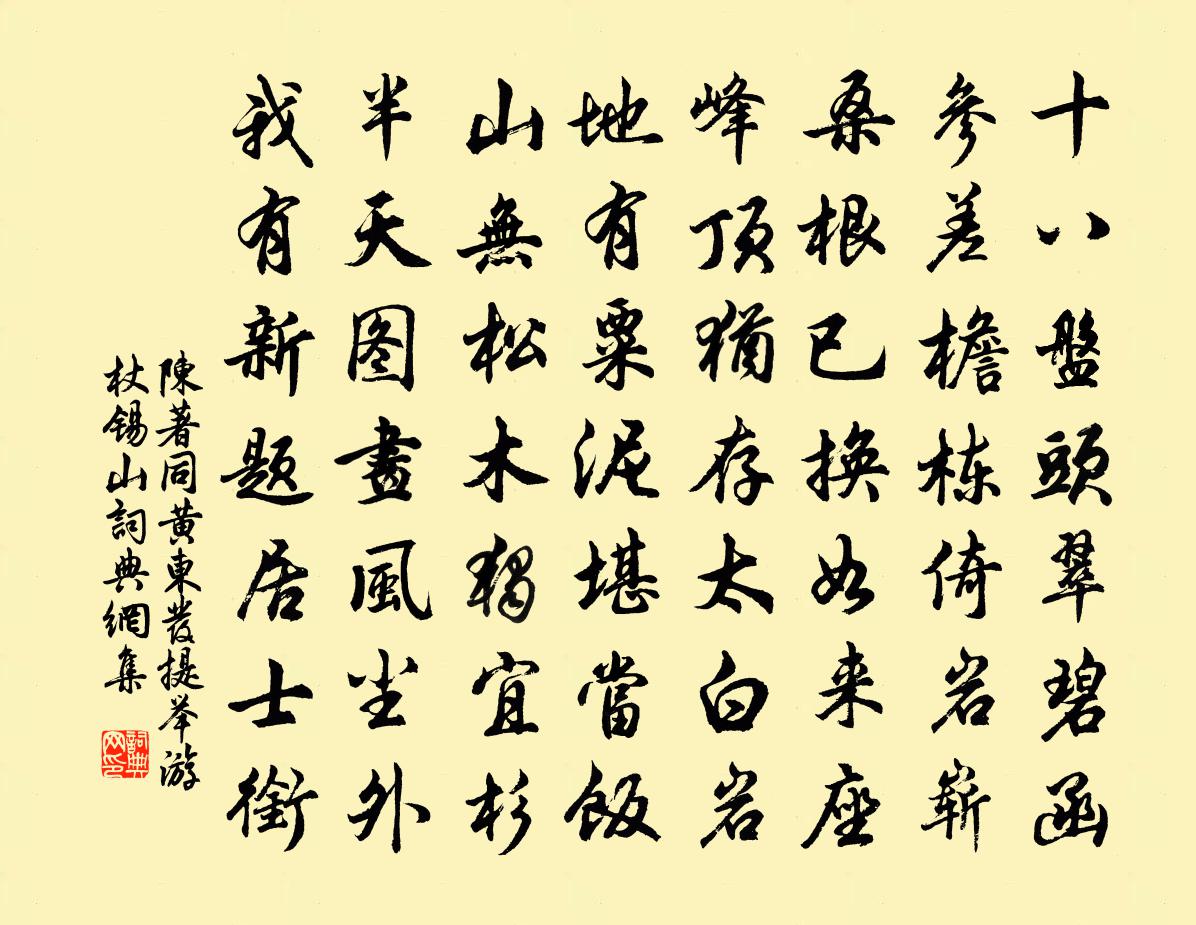 十八盤頭翠碧函
參差檐栋倚岩嶄
桑根已換如来座
峰頂猶存太白岩
地有粟泥堪當飯
山無松木獨宜杉
半天图畫風尘外
我有新题居士銜
陳著同黄東發提举游
杖錫山詞典網集
詞典网印